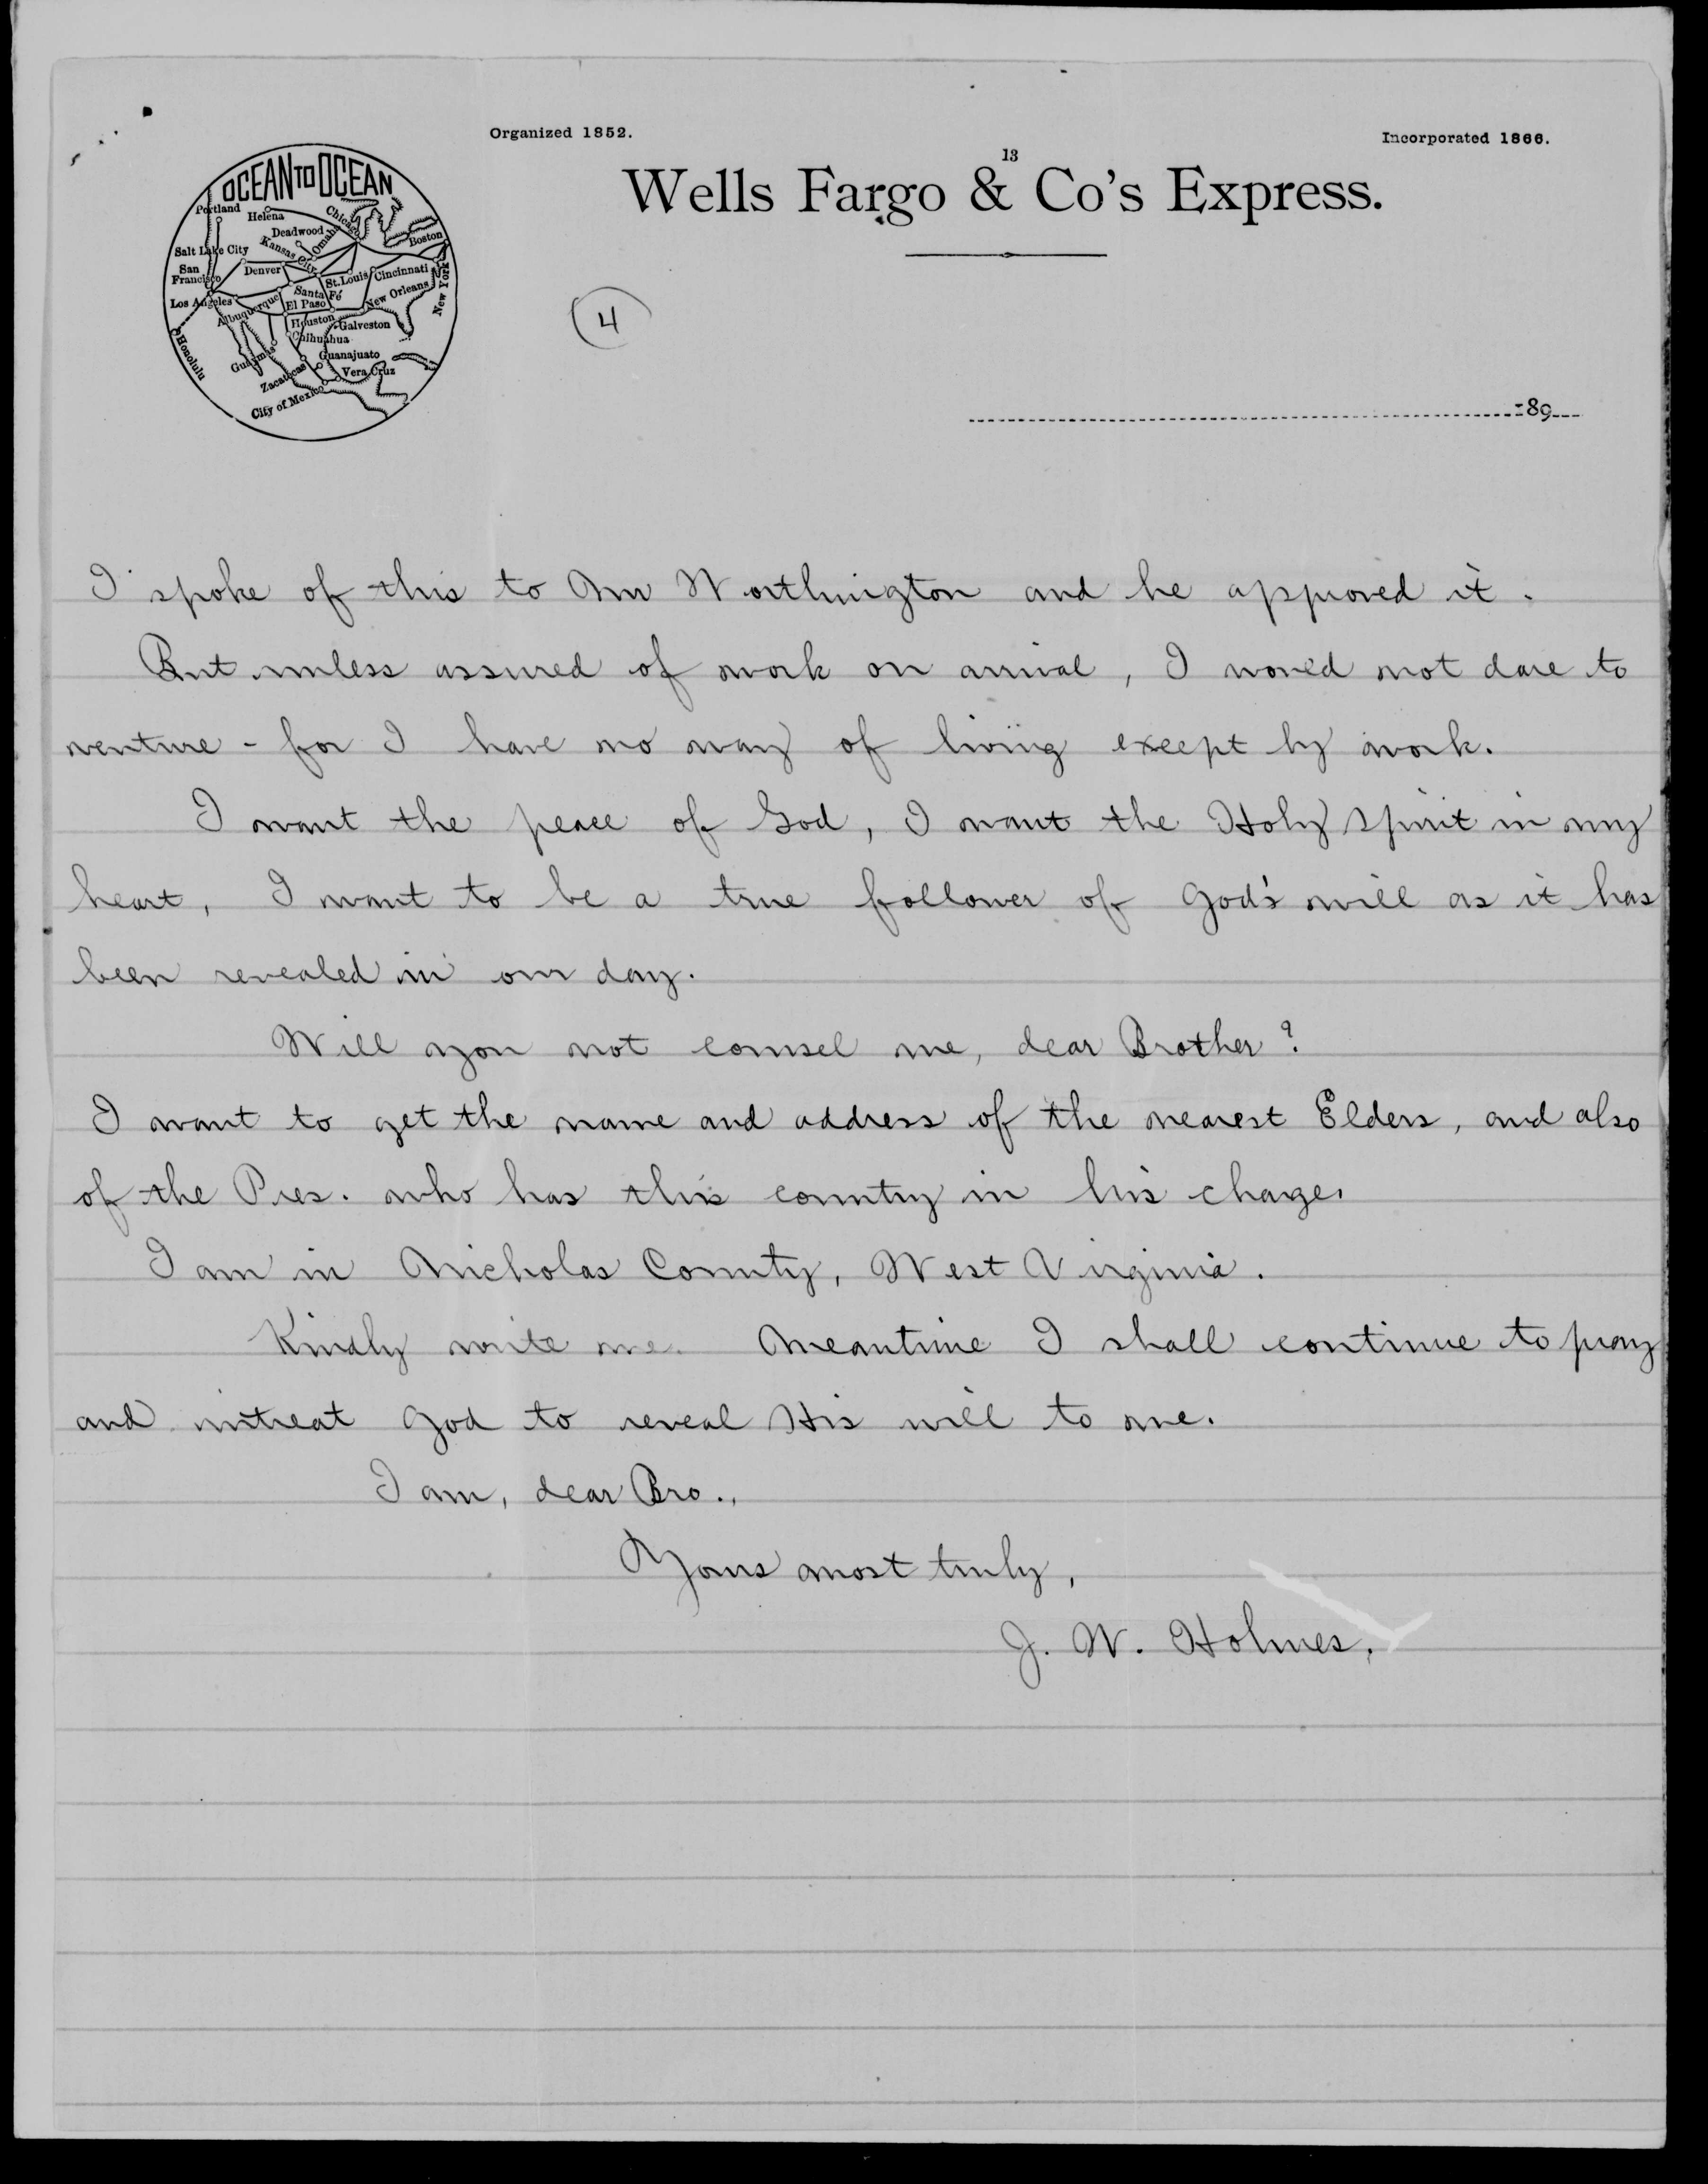 Organized 1852.
Incorporated 1866.
13
Wells Fargo & Co's Express.
OCEAN TO OCEAN
Portland
Helena
Chicago
Deadwood
Omaha
Boston
Salt Lake City
Kansas City
San Francisco
Denver
St. Louis
Cincinnati
New York
Santa Fé
Los Angeles
Albuquerque
El Paso
New Orleans
Houston
Galveston
Chihuahua
Honolulu
Guaymas
Guanajuato
Zacatecas
Vera Cruz
City of Mexico
4
189
I spoke of this to Mr Worthington and he approved it.
But unless assured of work on arrival, I would not dare to
venture - for I have no way of living except by work.
I want the peace of God, I want the Holy Spirit in my
heart, I want to be a true follower of God's will as it has
been revealed in our day.
Will you not counsel me, dear Brother?
I want to get the name and address of the nearest Elders, and also
of the Pres. who has this country in his charge.
I am in Nicholas County, West Virginia.
Kindly write me. Meantime I shall continue to pray
and intreat God to reveal His will to me.
I am, dear Bro.,
Yours most truly,
J. W. Holmes.